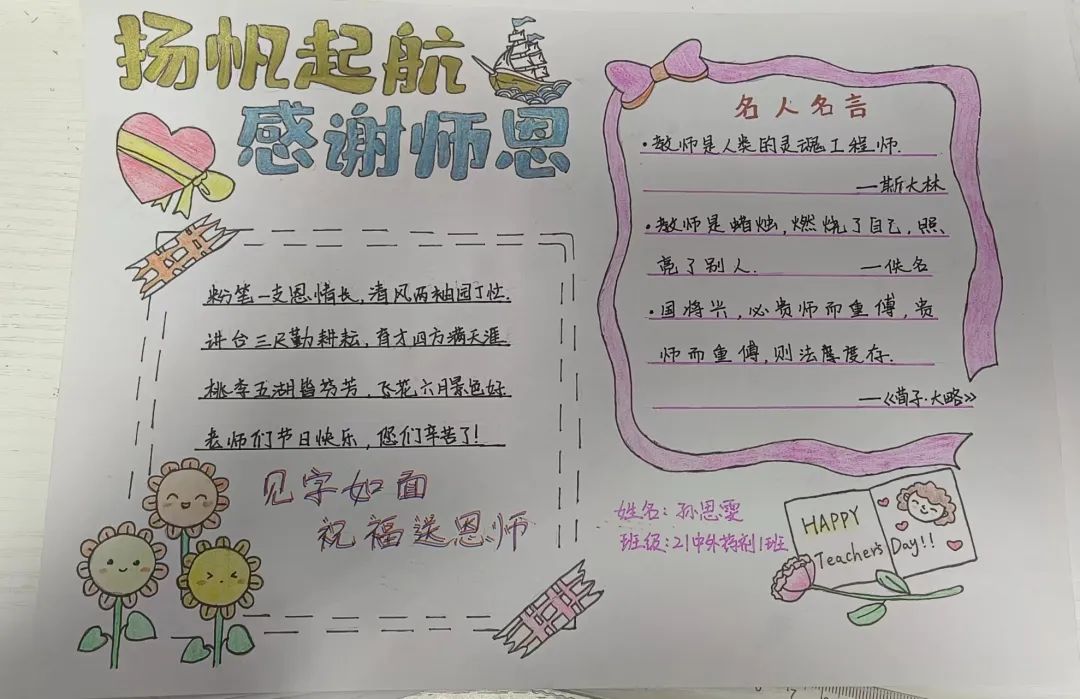 扬帆起航
感谢师恩
粉笔一支恩情长，清风两袖园丁忙.
讲台三尺勤耕耘，育才四方满天涯.
桃李五湖皆芬芳，飞花六月景色好.
老师们节日快乐，您们辛苦了！
见字如面
祝福送恩师
名人名言
·教师是人类的灵魂工程师.
—斯大林
·教师是蜡烛，燃烧了自己，照
亮了别人.
—佚名
·国将兴，必贵师而重傅，贵
师而重傅，则法度存.
—《荀子·大略》
姓名：孙恩雯
班级：21中外药剂1班
HAPPY
Teacher's Day!!